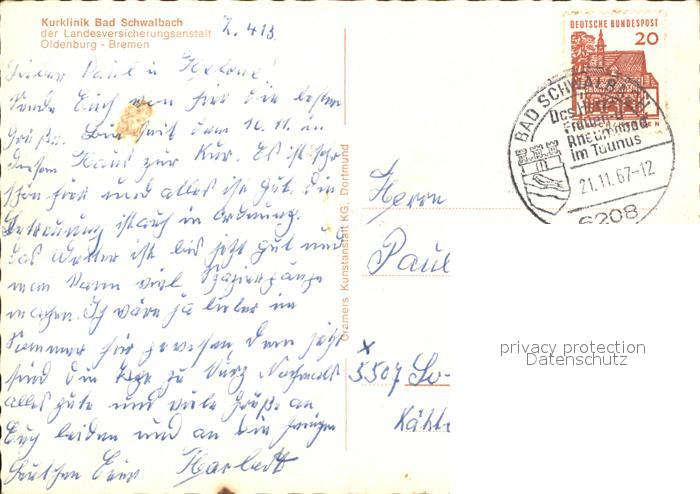 Kurklinik Bad Schwalbach
der Landesversicherungsanstalt
Oldenburg - Bremen
Z. 413.
Lieber Paul u Helene!
Sende Euch von hier die besten
Grüße. Bin seit dem 10. 11. in
diesem Haus zur Kur. Es ist sehr
schön hier und alles ist gut. Die
Betreuung ist auch in Ordnung.
Das Wetter ist bis jetzt gut und
man kann viel Spaziergänge
machen. Ich wäre ja lieber im
Sommer hier gewesen, denn jetzt
sind die Tage zu kurz. Nochmals
alles gute und viele Grüße an
Euch beiden und an die jungen
Cramers Kunstanstalt KG, Dortmund
DEUTSCHE BUNDESPOST
20
BAD SCHWALBACH
Das Herz
Frauen-u
Rheumabad
im Taunus
21.11.67-12
6208
Herrn
Paul
x
5507
privacy protection
Datenschutz